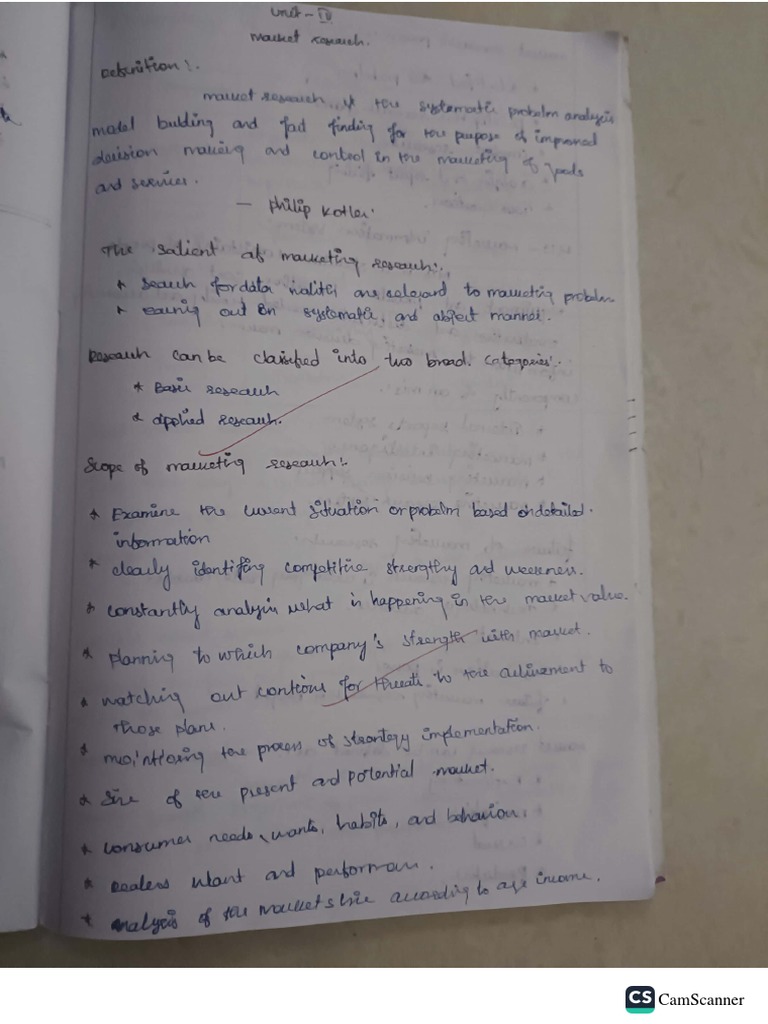 Unit - IV
Market research.
Definition:.
market research is the systematic problem analysis
model building and fact finding for the purpose of improved
decision making and control in the marketing of goods
and services.
- Philip Kotler.
The salient of marketing research:.
* Search for data are relevant to marketing problem.
* out on systematic, and object manner.
Research can be classified into two broad categories:.
* Basic research
* applied research.
Scope of marketing research:.
* Examine the current situation or problem based on detailed.
information
* clearly identifing competitive strengths and weekness.
* constantly analysis what is happening in the market value.
* planning to which company's strength with market.
* watching out for threats to the to
those plans.
* the process of implementation.
* Size of the present and potential market.
* consumer needs, wants, habits, and behaviour.
* Dealers want and
* analysis of the market size according to age income.
CS CamScanner